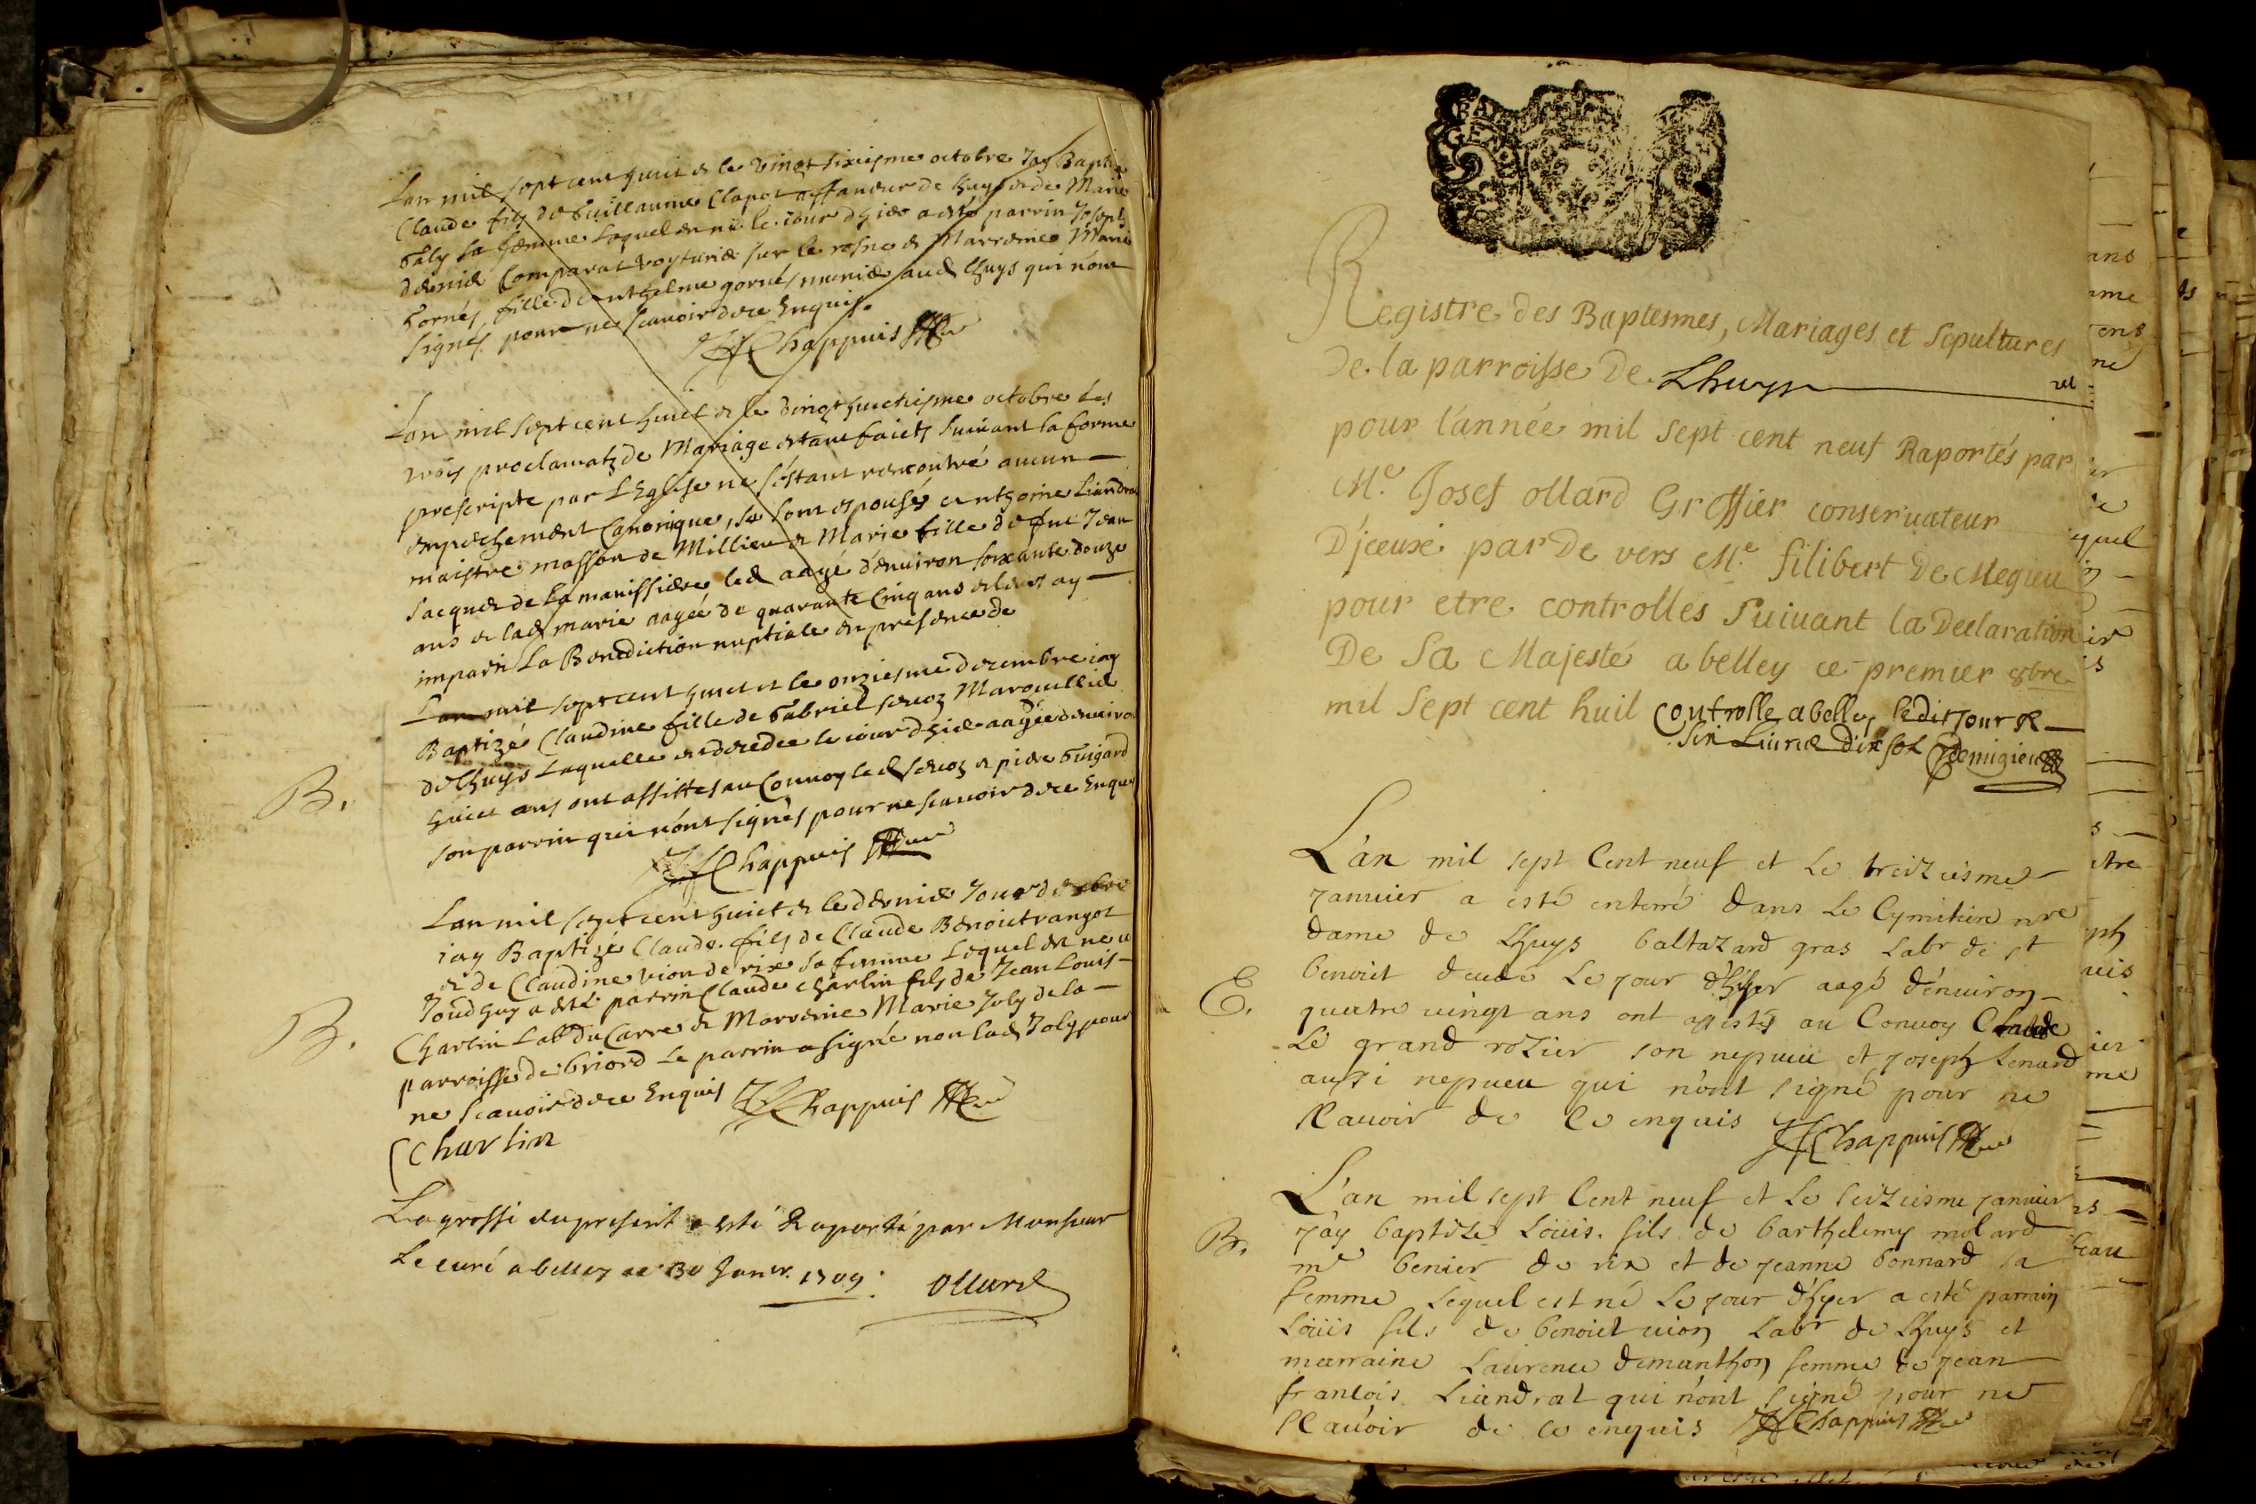 Lan mil sept cent huict & le vingt sixiesme octobre Jay Baptisé
Claude fils de Guillaume Clapot affaneur de lhuys & de Marie
Galy sa femme lequel est né le iour dhier a esté parrin Joseph
Comparat voyturier sur le rosne & Marreine Marie
Gornés fille danthelme gornés munier aud lhuys qui nont
signés pour ne scauoir de ce Enquis
Chappuis
Lan mil sept cent huict & le vingt huictiesme octobre les
trois proclamatz de Mariage estant faicts suiuant la forme
prescripte par LEglise ne sestant rencontré aucun
empechement Canonique, se sont espousés anthoine Liandrat
maistre masson de Millieu & Marie fille de feu Jean
Jacques de la manissiere led aagé denuiron soixante douze
ans & lad marie aagée de quarante Cinq ans & leur ay
imparti La Benediction nuptiale en presence de
Lan mil sept cent huict et le onziesme decembre iay
Baptizé Claudine fille de Gabriel
de lhuys laquelle est decedee le iour dhier aagée denuiron
huict ans ont assistes au Conuoy led & piere Guigard
son parrin qui nont signés pour ne scauoir de ce Enquis
B.
Chappuis
Lan mil sept cent huict & le dernier Jour de xbre
iay Baptizé Claude fils de Claude Benoict rangot
& de Claudine vion de rix sa femme Lequel est ne
Joudhuy a esté parrin Claude charlin fils de Jean Louis
B.
Charlin Lab du Carre & Marreine Marie Joly de la
parroisse de briord Le parrin a signé non lad Joly pour
ne scauoir de ce Enquis Chappuis
C Charlin
La grosse du present a esté Raporté par Monsieur
Le curé a belley ce 30 Janur. 1709. Ollard
Registre des Baptesmes, Mariages et Sepultures
de la parroisse de Lhuys
pour l'année mil sept cent neuf Raportés par
Me. Josef ollard Greffier conseruateur
D'jceux par de vers Me. filibert De Megieu
pour etre controlles Suiuant la Declaration
De Sa Majesté a belley ce premier 8bre
mil Sept cent huit Controlle a belley ledit Jour R
Six Liures dix sol Demigieu
L'an mil sept Cent neuf et Le treiziesme
januier a esté enterré dans Le Cymitiere nre
dame de Lhuys baltazard gras Labr de st
benoict decede Le jour d'hyer aagé d'enuiron
E.
quatre uingt ans ont assistés au Conuoy Claude
Le grand rozier son nepueu et joseph Lenard
aussi nepueu qui n'ont signé pour ne
scauoir de ce enquis Chappuis
L'an mil sept Cent neuf et Le seiziesme januier
B.
j'ay baptize Loüis fils de barthelemy molard
me benier de rix et de jeanne bonnard sa
femme Lequel est né Le jour d'hyer a esté parrain
Loüis fils de benoict uion Labr de Lhuys et
marraine Laurence demanthon femme de jean
francois Liandrat qui n'ont signé pour ne
scauoir de ce enquis Chappuis